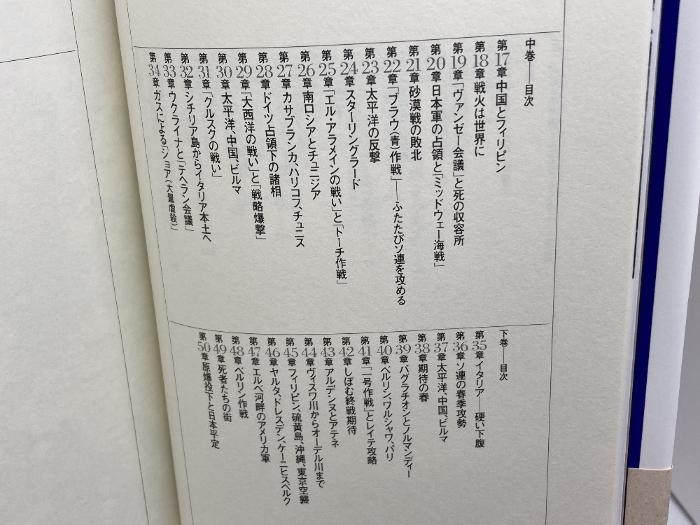 中巻——目次
第17章 中国とフィリピン
第18章 戦火は世界に
第19章 「ヴァンゼー会議」と死の収容所
第20章 日本軍の占領と「ミッドウェー海戦」
第21章 砂漠戦の敗北
第22章 「ブラウ(青)作戦」——ふたたびソ連を攻める
第23章 太平洋の反撃
第24章 スターリングラード
第25章 「エル・アラメインの戦い」と「トーチ作戦」
第26章 南ロシアとチュニジア
第27章 カサブランカ、ハリコフ、チュニス
第28章 ドイツ占領下の諸相
第29章 「大西洋の戦い」と「戦略爆撃」
第30章 太平洋、中国、ビルマ
第31章 「クルスクの戦い」
第32章 シチリア島からイタリア本土へ
第33章 ウクライナと「テヘラン会議」
第34章 ガスによる「ショア(大量虐殺)」
下巻——目次
第35章 イタリア——硬い下腹
第36章 ソ連の春季攻勢
第37章 太平洋、中国、ビルマ
第38章 期待の春
第39章 バグラチオンとノルマンディー
第40章 ベルリン、ワルシャワ、パリ
第41章 「一号作戦」とレイテ攻略
第42章 しぼむ終戦期待
第43章 アルデンヌとアテネ
第44章 ヴィスワ川からオーデル川まで
第45章 フィリピン、硫黄島、沖縄、東京空襲
第46章 ヤルタ、ドレスデン、ケーニヒスベルク
第47章 エルベ河畔のアメリカ軍
第48章 ベルリン作戦
第49章 死者たちの街
第50章 原爆投下と日本平定